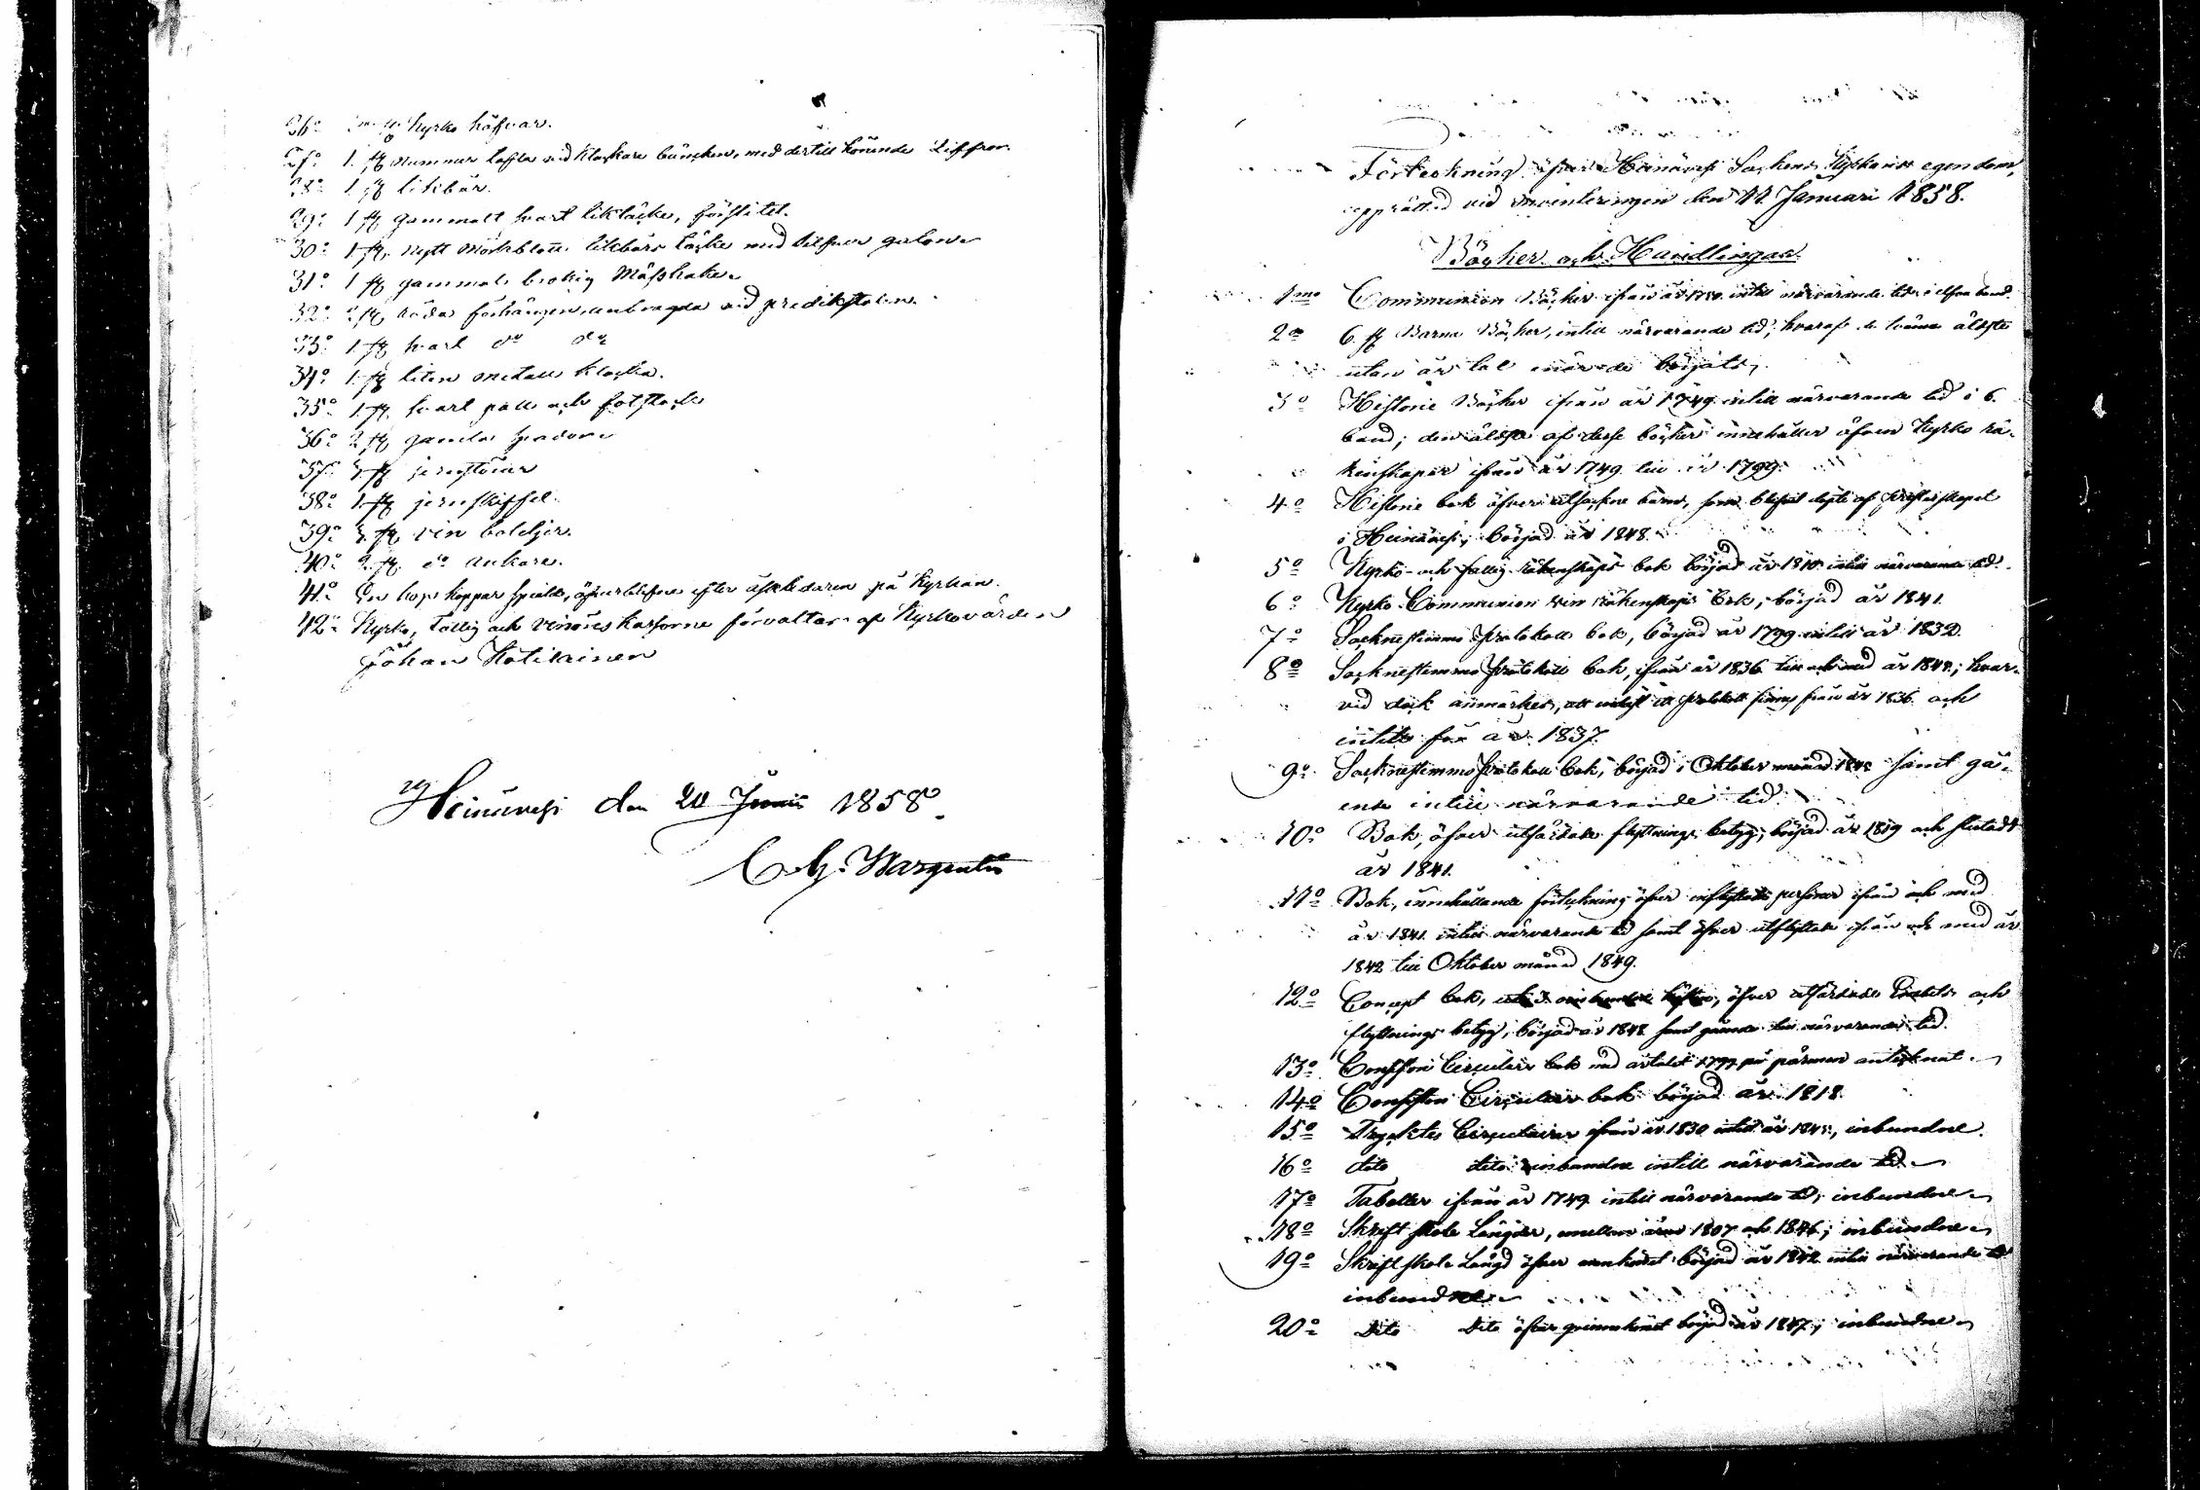 26º kyrko håfvar.
27º 1. st nummer tafla vid klockare bäncken, med dertill hörande Ziffror.
28º 1 st likbår.
29º 1 st gammalt svart liktäcke, förslitet.
30º 1. st. nytt mörkblått likbårs täcke med silfver galoner
31º 1 st gammal brokig Mässhake
32º 2 st röda förhängen, anbragda vid predikstolen.
33º 1. st svart dº dº
34º 1. st liten metall klocka.
35º 1. st. svart pall och fotstock
36º 2 st gamla spadar
37º st jernstörar
38º 1. st jernskyffel.
39º st. vin boteljer.
40º 2. st. dº ankare.
41º En hop koppar spillr, öfverblefne efter åskledaren på Kyrkan.
42º Kyrko, Fattig och Vinöres kassorne förvaltas af Kyrkovärden
Johan Kotilainen
Heinävesi den 20 Junii 1858.
C. G. Wargentin
Förteckning öfver Heinävesi Sockens Kyrkas egendom,
upprättad vid inventeringen den 12 Januari 1858.
Böcker och Handlingar.
1mo Communion Böcker ifrån år intill närvarande tid i band.
2º 6. st Barna Böcker, intill närvarande tid, hvaraf de tvänne äldste
utan år tal när de börjats,
3º Historie Böcker ifrån år 1749 intill närvarande tid i 6.
band; den äldsta af desse böcker innehåller äfven Kyrko rä-
kenskaper ifrån år 1749 till år 1799.
4º Historie bok öfver barn, som blifvit döpte af Presterskapet
i Heinävesi, börjad år 1848.
5º Kyrko- och fattig Räkenskaps bok börjad år 1810 intill närvarande tid.
6º Kyrko Communion vin räkenskaps bok, börjad år 1841.
7º Sockneستämmo Protokolls bok, börjad år 1799 intill år 1832.
8º Socknestämmo Protokolls bok, ifrån år 1836 till och med år 1842; hvar-
vid dock anmärkes, att endast ett protokoll finnes från år 1836 och
intet för år 1837.
9º Socknestämmo Protokolls bok, börjad i Oktober månad samt gå-
ende intill närvarande tid.
10º Bok, öfver utfärdade flyttnings betyg, börjad år 1819 och slutad
år 1841.
11º Bok, innehållande förteckning öfver inflyttade personer ifrån och med
år 1841 intill närvarande tid samt öfver utflyttade ifrån och med år
1842 till Oktober månad 1849.
12º Concept bok, öfver utfärdade och
flyttnings betyg, börjad år 1848 samt gående till närvarande tid.
13º Consistorii Circulair bok med årtalet 1799 på pärmen antecknat.
14º Consistorii Circulair bok börjad år 1818.
15º Tryckta Circulairer ifrån år 1830 intill år inbundne.
16º dito dito inbundne intill närvarande tid.
17º Tabeller ifrån år 1749 intill närvarande tid, inbundne
18º Skriftskole Längder, mellan åren 1807 och 1846; inbundne
19º Skriftskole Längd öfver mankönet börjad år 1842 intill närvarande tid
inbunden
20º Dito Dito öfver qvinnokönet börjad år 1847; inbundne